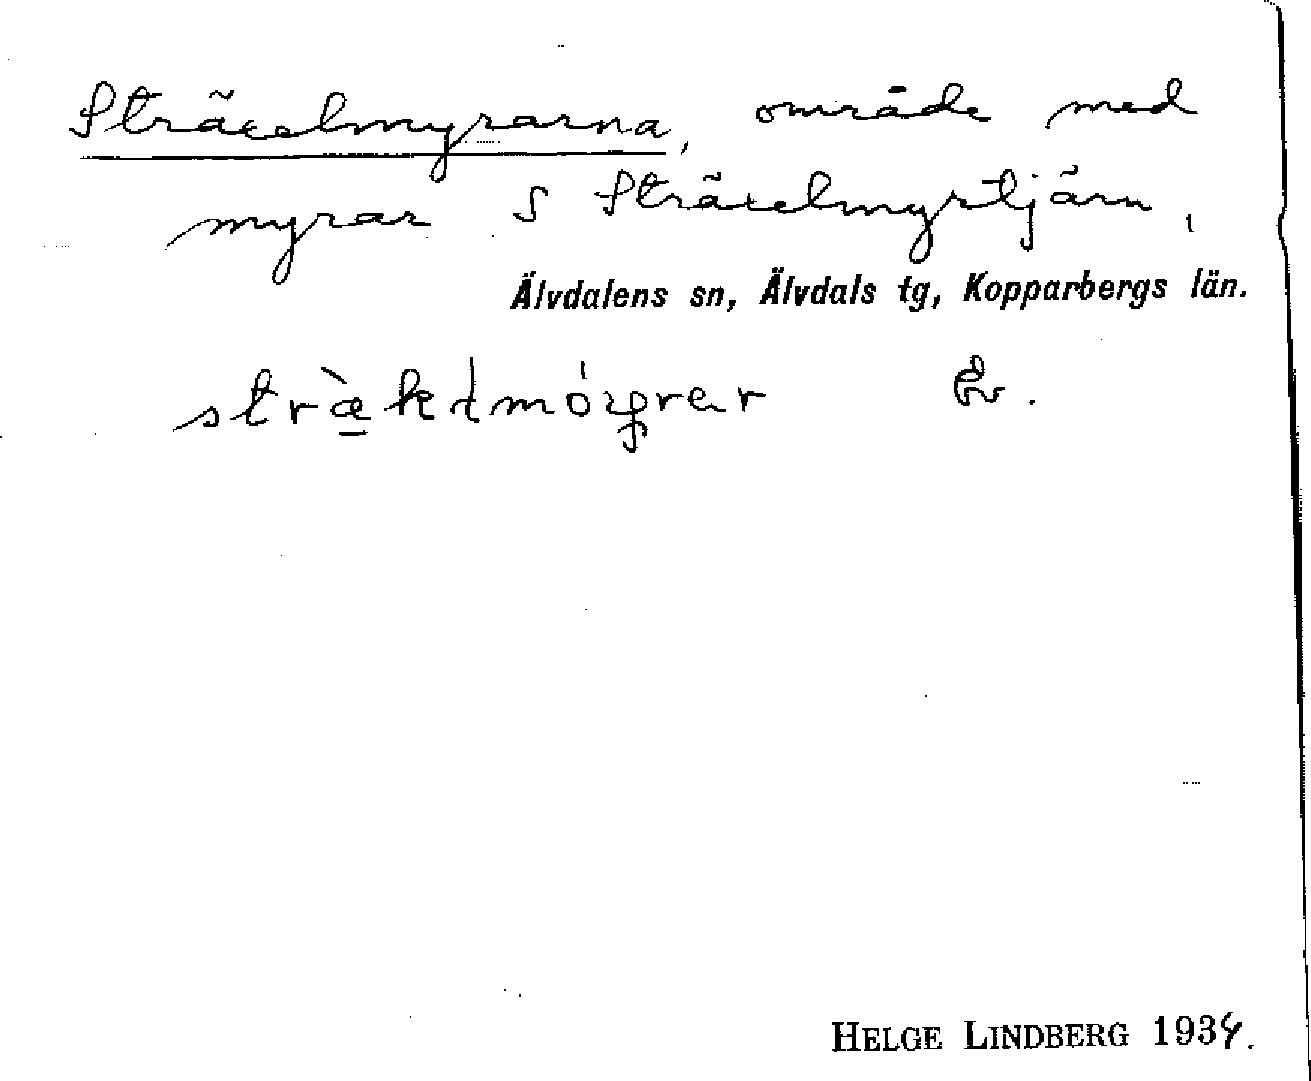 Sträkelmyrarna, område med
myrar S Sträkelmyrtjärn,
Älvdalens sn, Älvdals tg, Kopparbergs län.
HELGE LINDBERG 1934.